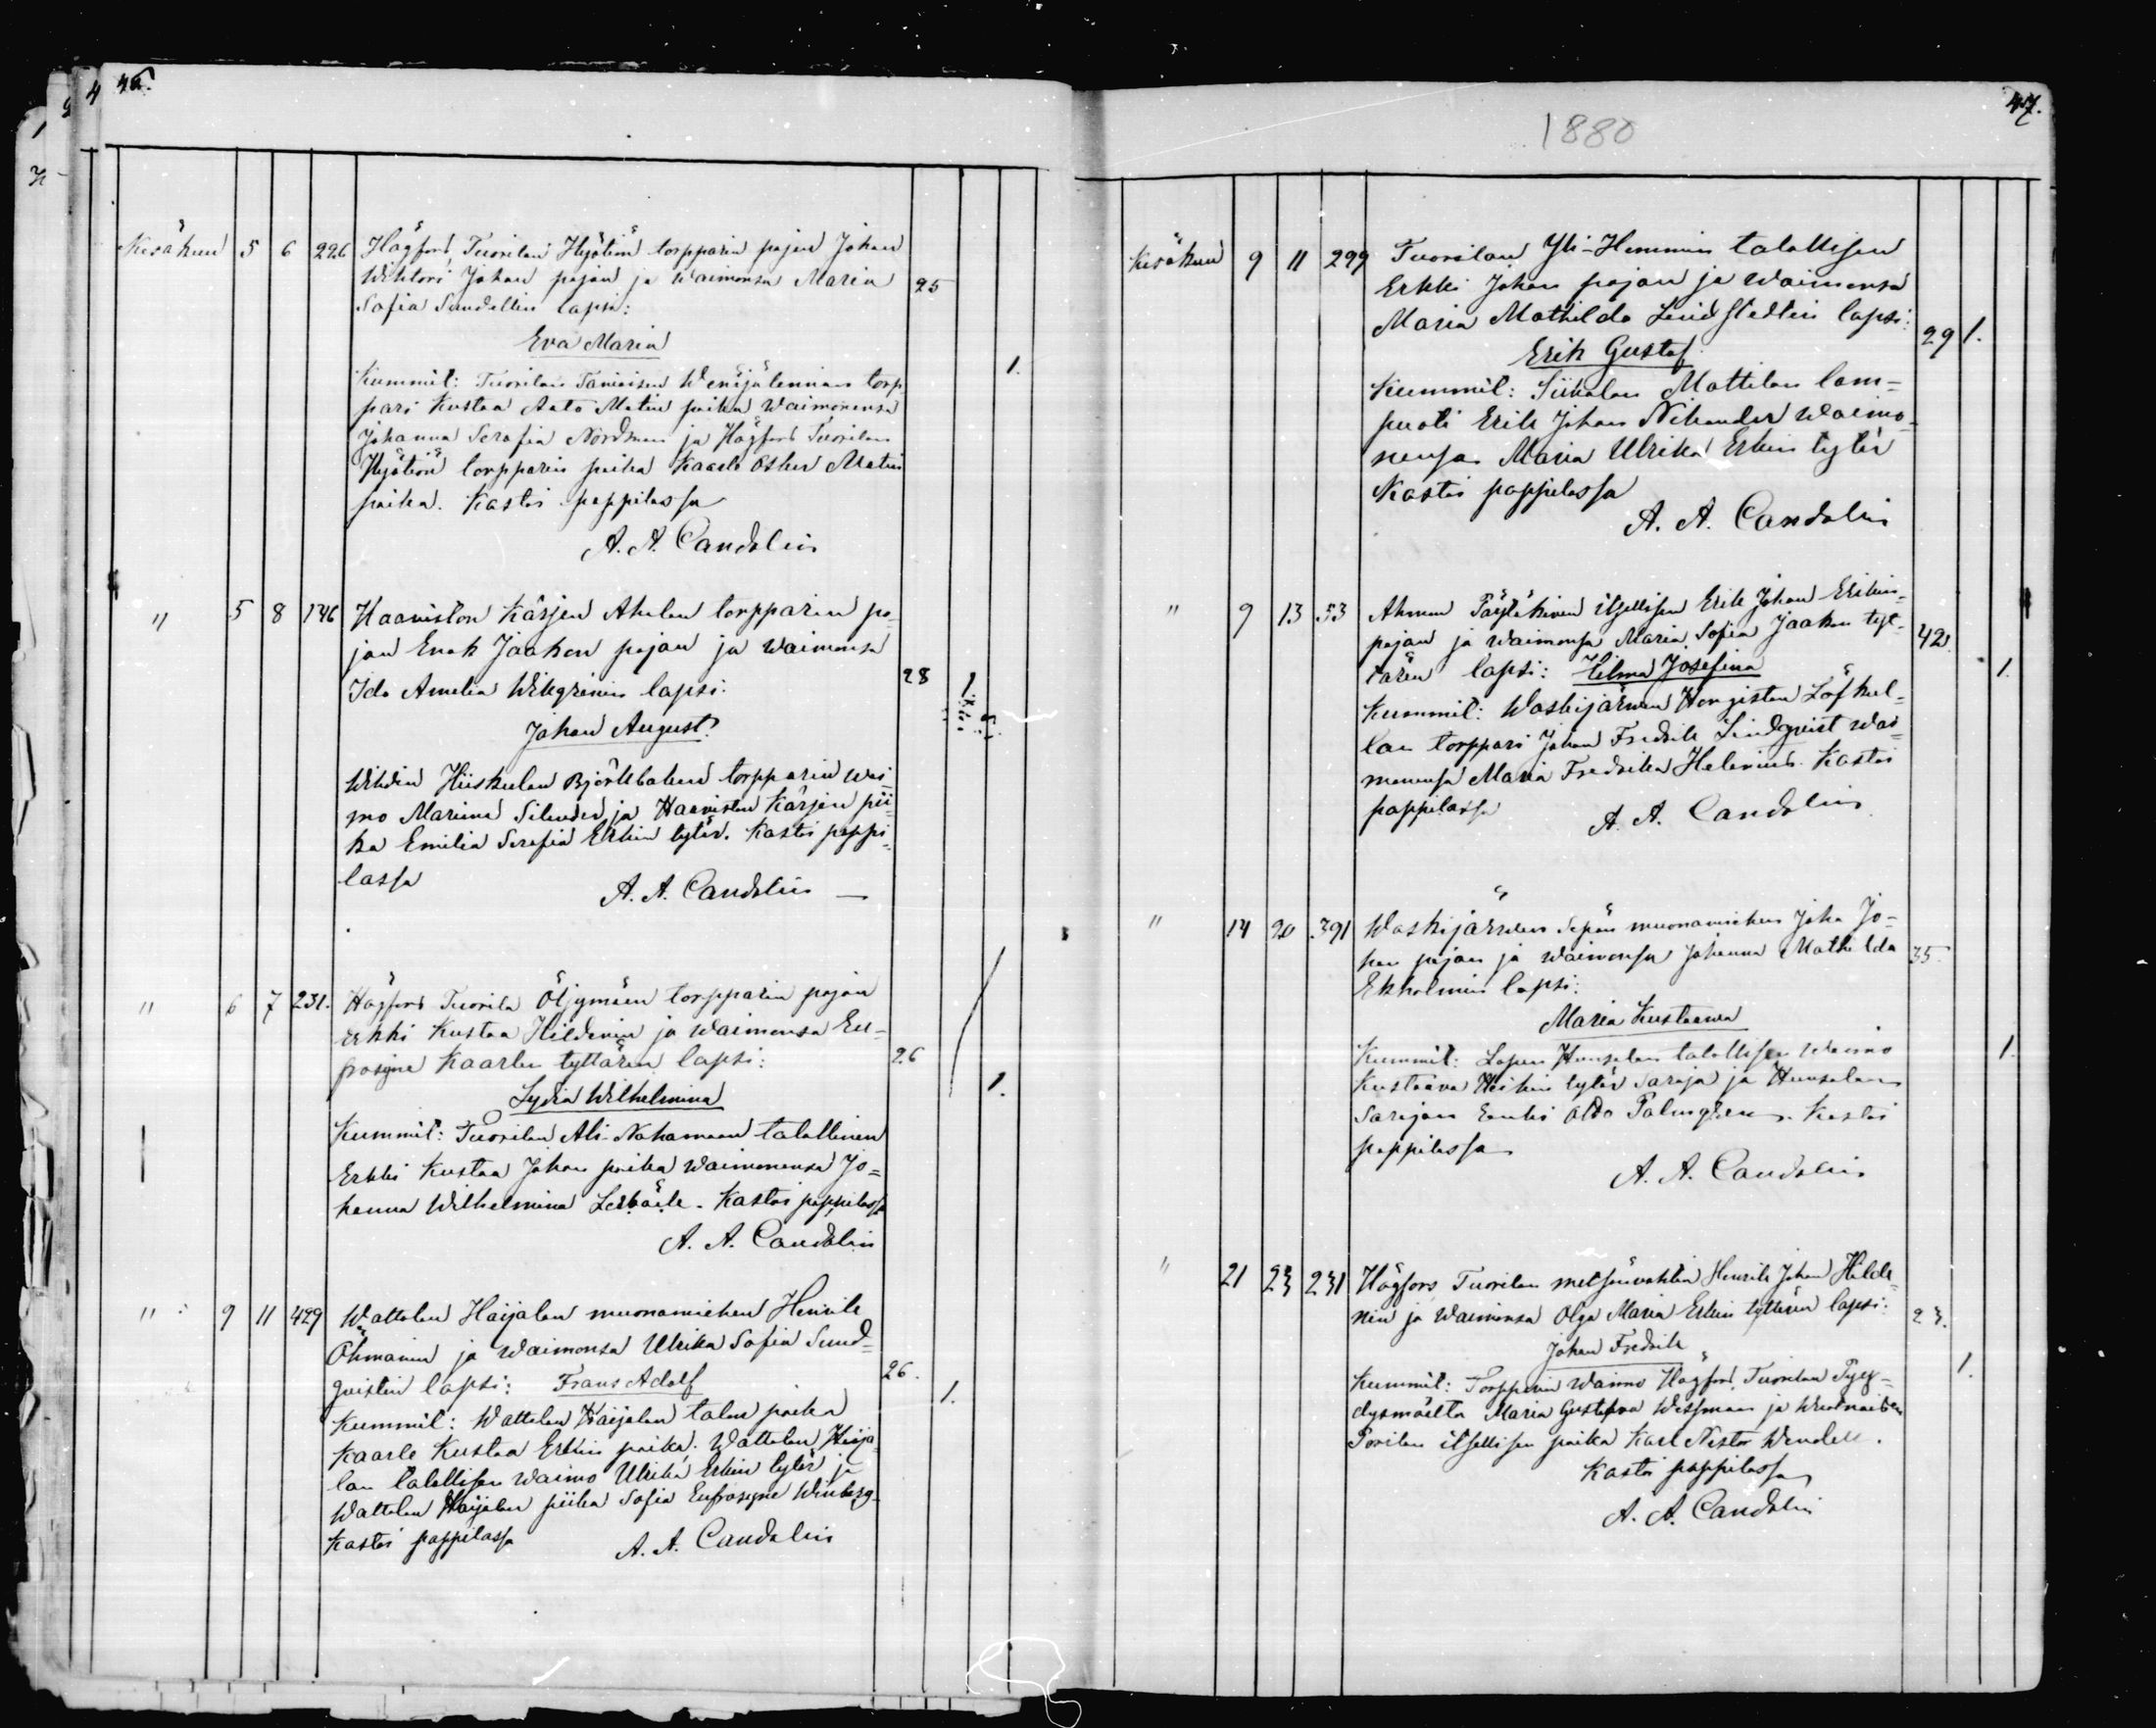 46.
Kesäkuu 5 6 226 Högfors, Tuorilan Hyötiön torpparin pojan Johan
Wihtori Johan pojan ja waimonsa Maria 25
Sofia Sundellin lapsi:
Eva Maria
1.
Kummit: Tuorilan torp-
pari Kustaa Aato Matin poika waimonensa
Johanna Serafia Nordman ja Högfors Tuorilan
Hyötiön torpparin poika Kaarlo Oskar Matin
poika. Kastoi pappilassa
A. A. Candolin
" 5 8 146 Haaviston Kärjen Aholan torpparin po-
jan Enok Jaakon pojan ja waimonsa
Ida Amalia Wikgrenin lapsi: 28 1.
Johan August.
Wihdin Hiiskulan torpparin wai-
mo Mariana Silander ja Haaviston Kärjen pii-
ka Emilia Serafia Erkin tytär. Kastoi pappi-
lassa
A. A. Candolin
" 6 7 231. Högfors Tuorila Öljymäen torpparin pojan
Erkki Kustaa Hildenin ja waimonsa Eu-
frosyne Kaarlen tyttären lapsi: 26
Lydia Wilhelmina 1.
Kummit: Tuorilan Ali-Nahamaan talollinen
Erkki Kustaa Johan poika waimonensa Jo-
hanna Wilhelmina Kastoi pappilassa
A. A. Candolin
" 9 11 429 Wattolan Haijalan muonamiehen Henrik
Öhmanin ja waimonsa Ulrika Sofia Sund-
qvistin lapsi: Frans Adolf 26.
1.
Kummit: Wattolan Haijalan talon poika
Kaarle Kustaa Erkin poika, Wattolan Haija-
lan talollisen waimo Ulrika Erkin tytär ja
Wattolan Haijalan piika Sofia Eufrosyne Winberg.
Kastoi pappilassa
A. A. Candolin
47.
1880
Kesäkuu 9 11 299 Tuorilan Yli-Hemmin talollisen
Erkki Johan pojan ja waimonsa
Maria Mathilda Lindstedtin lapsi: 29 1.
Erik Gustaf.
Kummit: Siikalan Mattilan lam-
puoti Erik Johan Nikander waimo-
nensa Maria Ulrika Erkin tytär
Kastoi pappilassa
A. A. Candolin
" 9 13 53 Ahmoon itsellisen Erik Johan Erikin-
pojan ja waimonsa Maria Sofia Jaakon tyt- 42
tären lapsi: Hilma Josefina 1.
Kummit: Waskijärwen Hongiston Löfkul-
lan torppari Johan Fredrik Lindqvist wai-
monensa Maria Fredrika Helenius. Kastoi
pappilassa
A. A. Candolin
" 14 20 391 Waskijärwen Sepän muonamiehen Joha Jo-
han pojan ja waimonsa Johanna Mathilda 35.
Ekholmin lapsi:
Maria Kustaawa
Kummit: Lopen Hunsalan talollisen waimo 1.
Kustaava Heikin tytär Saraja ja Hunsalan
Sarajan Enoki Aldo Palmgren. Kastoi
pappilassa
A. A. Candolin
" 21 23 231 Högfors Tuorilan metsänvahtin Henrik Johan Hilde-
nin ja waimonsa Olga Maria Erkin tyttären lapsi: 23.
Johan Fredrik
1.
Kummit: Torpparin waimo Högfors, Tuorilan Pyy-
dysmäeltä Maria Gustava Wessman ja
itsellisen poika Karl Nestor Wendell.
Kastoi pappilassa
A. A. Candolin